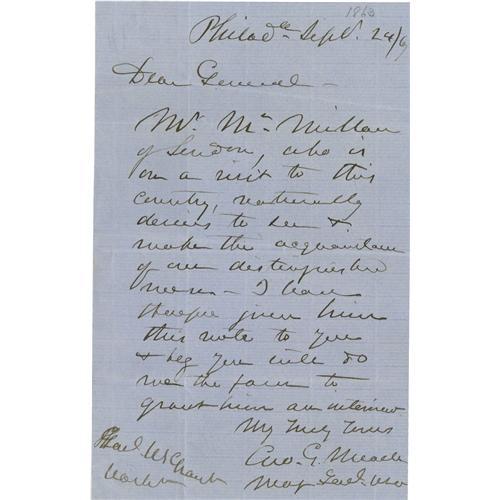 1863
Philad.a Sept. 24/6
Dear General -
Mr. Mc Millan
of London, who is
on a visit to this
country, naturally
desires to see &
make the acquaintance
of our distinguished
men - I have
therefore given him
this note to you
& beg you will do
me the favor to
grant him an interview
Very Truly Yours
Geo. G. Meade
Maj. Genl. USA
Genl U S Grant